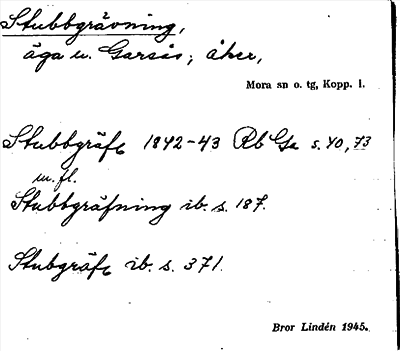 Stubbgrävning,
äga u. Garsås; åker,
Mora sn o. tg, Kopp. l.
Stubbgräfg 1842-43 Rb Ga s. 40, 73
m. fl.
Stubbgräfning ib. s. 187.
Stubgräfg ib. s. 371.
Bror Lindén 1945.